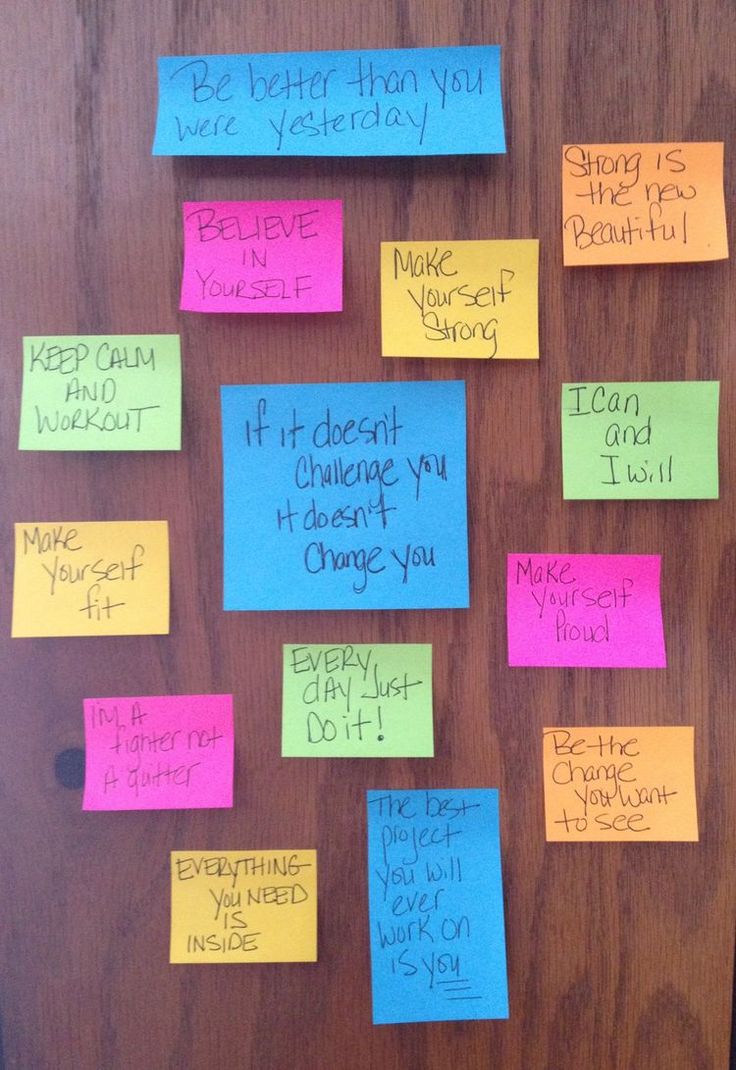 Be better than you
were yesterday
Strong is
the new
Beautiful
BELIEVE
IN
YOURSELF
Make
yourself
Strong
KEEP CALM
AND
WORKOUT
If it doesn't
Challenge you
it doesn't
Change you
I Can
and
I will
Make
yourself
fit
Make
yourself
Proud
EVERY
dAY Just
Do it!
I'm A
fighter not
A quitter
Be the
Change
You want
to see
The best
project
you will
ever
work on
is you
EVERYTHING
YOU NEED
IS
INSIDE